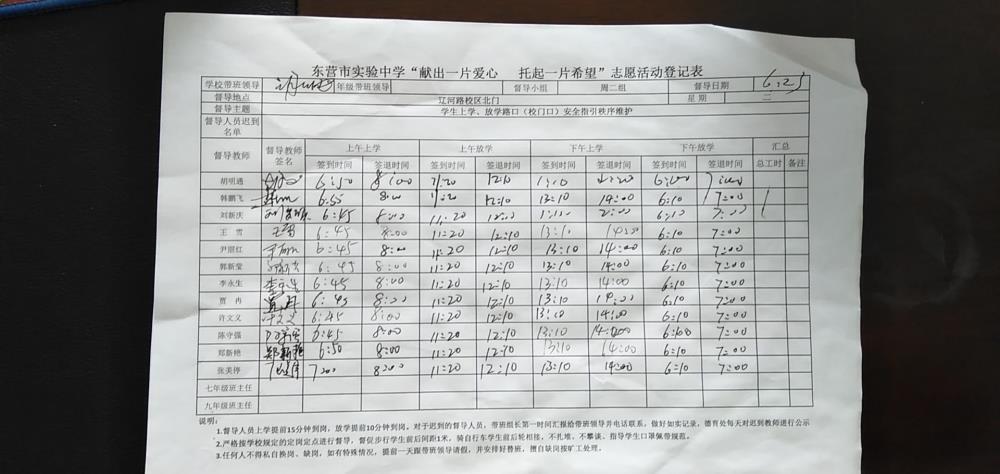 东营市实验中学“献出一片爱心 托起一片希望”志愿活动登记表
学校带班领导 年级带班领导 督导小组 周二组 督导日期 6.25
督导地点 辽河路校区北门 星期 三
督导主题 学生上学、放学路口（校门口）安全指引秩序维护
督导人员迟到名单
督导教师 督导教师签名 上午上学 上午放学 下午上学 下午放学 汇总
签到时间 签退时间 签到时间 签退时间 签到时间 签退时间 签到时间 签退时间 总工时 备注
胡明通 6:50 8:00 11:20 12:10 13:10 6:00 7:00
韩鹏飞 6:55 8:00 11:20 12:10 13:10 14:00 6:10 7:00
刘新庆 6:45 8:00 11:20 12:10 2:00 6:10 7:00
王雪 王雪 6:45 8:00 11:20 12:10 13:10 14:00 6:10 7:00
尹丽红 6:45 8:00 11:20 12:10 13:10 14:00 6:10 7:00
郭新莹 6:45 8:00 11:20 12:10 13:10 14:00 6:10 7:00
李永生 李永生 6:45 8:00 11:20 12:10 13:10 14:00 6:10 7:00
贾冉 贾冉 6:45 8:00 11:20 12:10 13:10 14:00 6:10 7:00
许文义 许文义 6:45 8:00 11:20 12:10 13:10 14:00 6:10 7:00
陈守强 6:45 8:00 11:20 12:10 13:10 14:00 7:00
郑新艳 郑新艳 6:50 8:00 11:20 12:10 13:10 14:00 6:10 7:00
张美停 7:00 8:00 11:20 12:10 13:10 14:00 6:10 7:00
七年级班主任
九年级班主任
说明：
1.督导人员上学提前15分钟到岗，放学提前10分钟到岗。对于迟到的督导人员，带班组长第一时间汇报给带班领导并电话联系，做好如实记录，德育处每天对迟到教师进行公示
2.严格按学校规定的定岗定点进行督导，督促步行学生前后间距1米，骑自行车学生前后轮相接，不扎堆、不攀谈、指导学生口罩佩带规范。
3.任何人不得私自换岗、缺岗，如有特殊情况，提前一天跟带班领导请假，并安排好替班，擅自缺岗按旷工处理。